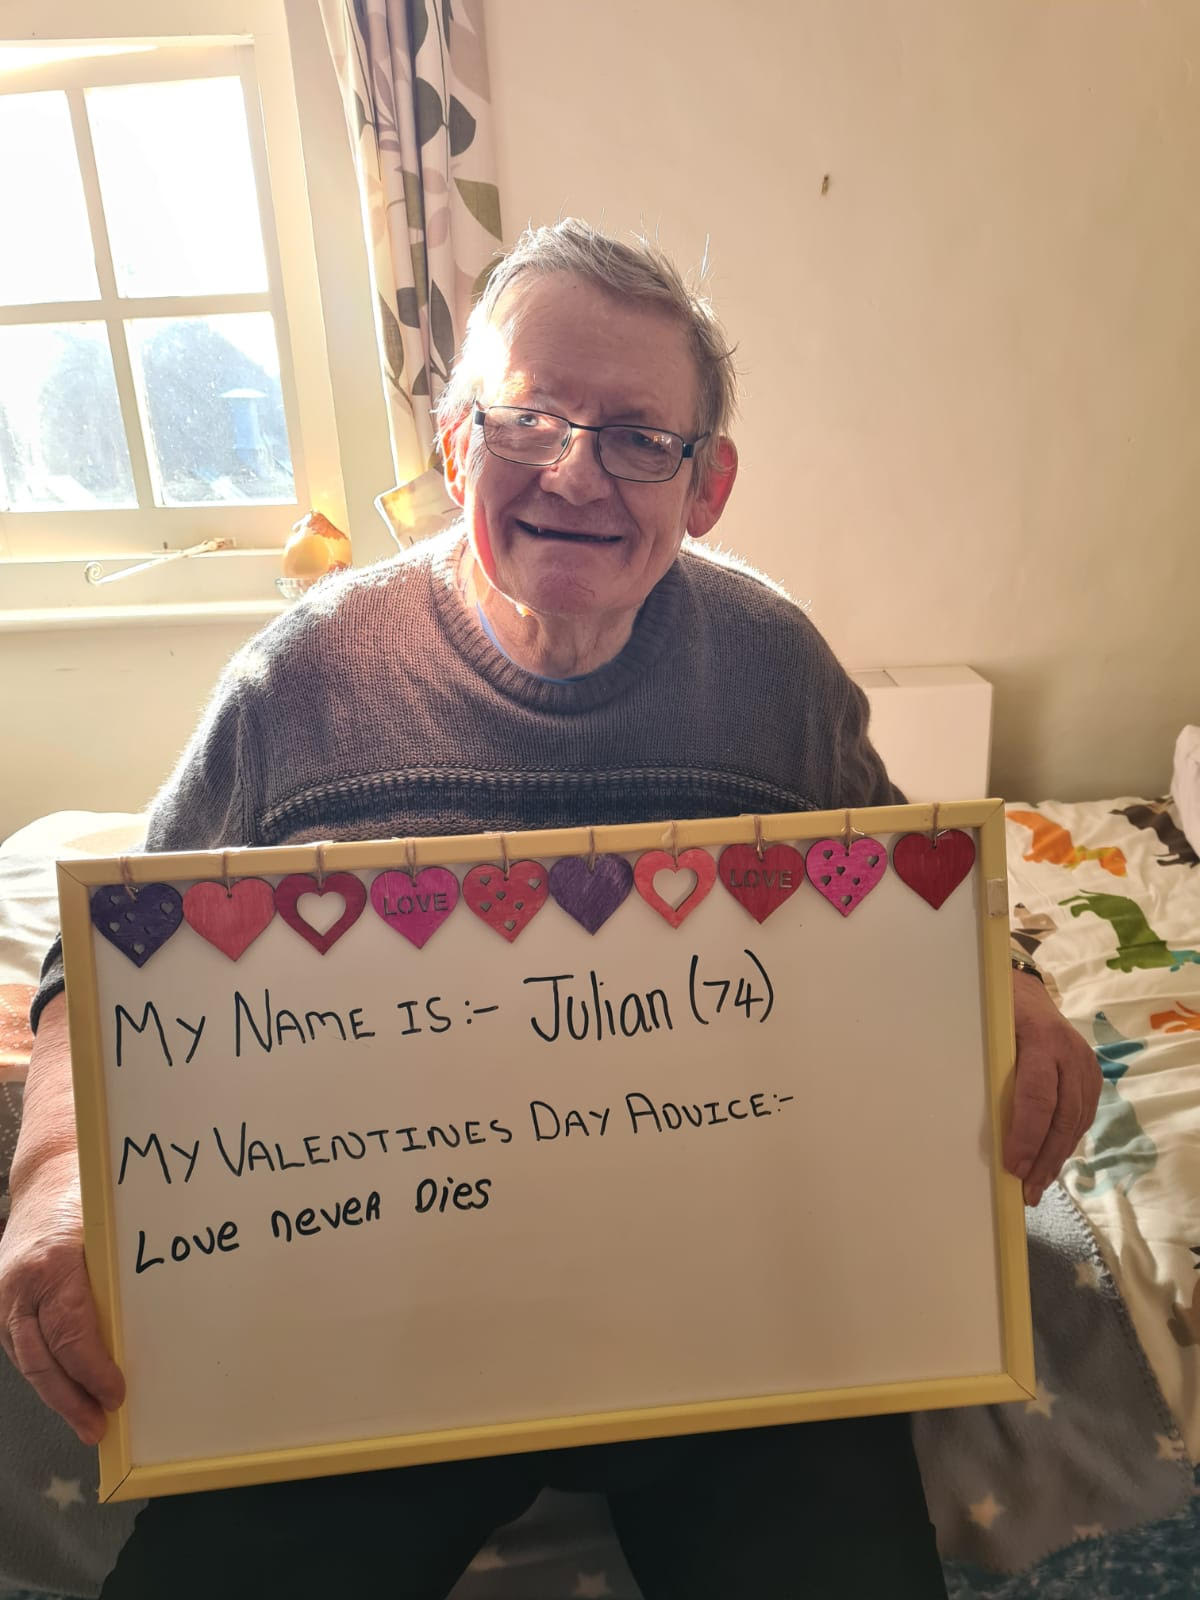 LOVE LOVE
My Name is:- Julian (74)
My Valentines Day Advice:-
Love never Dies